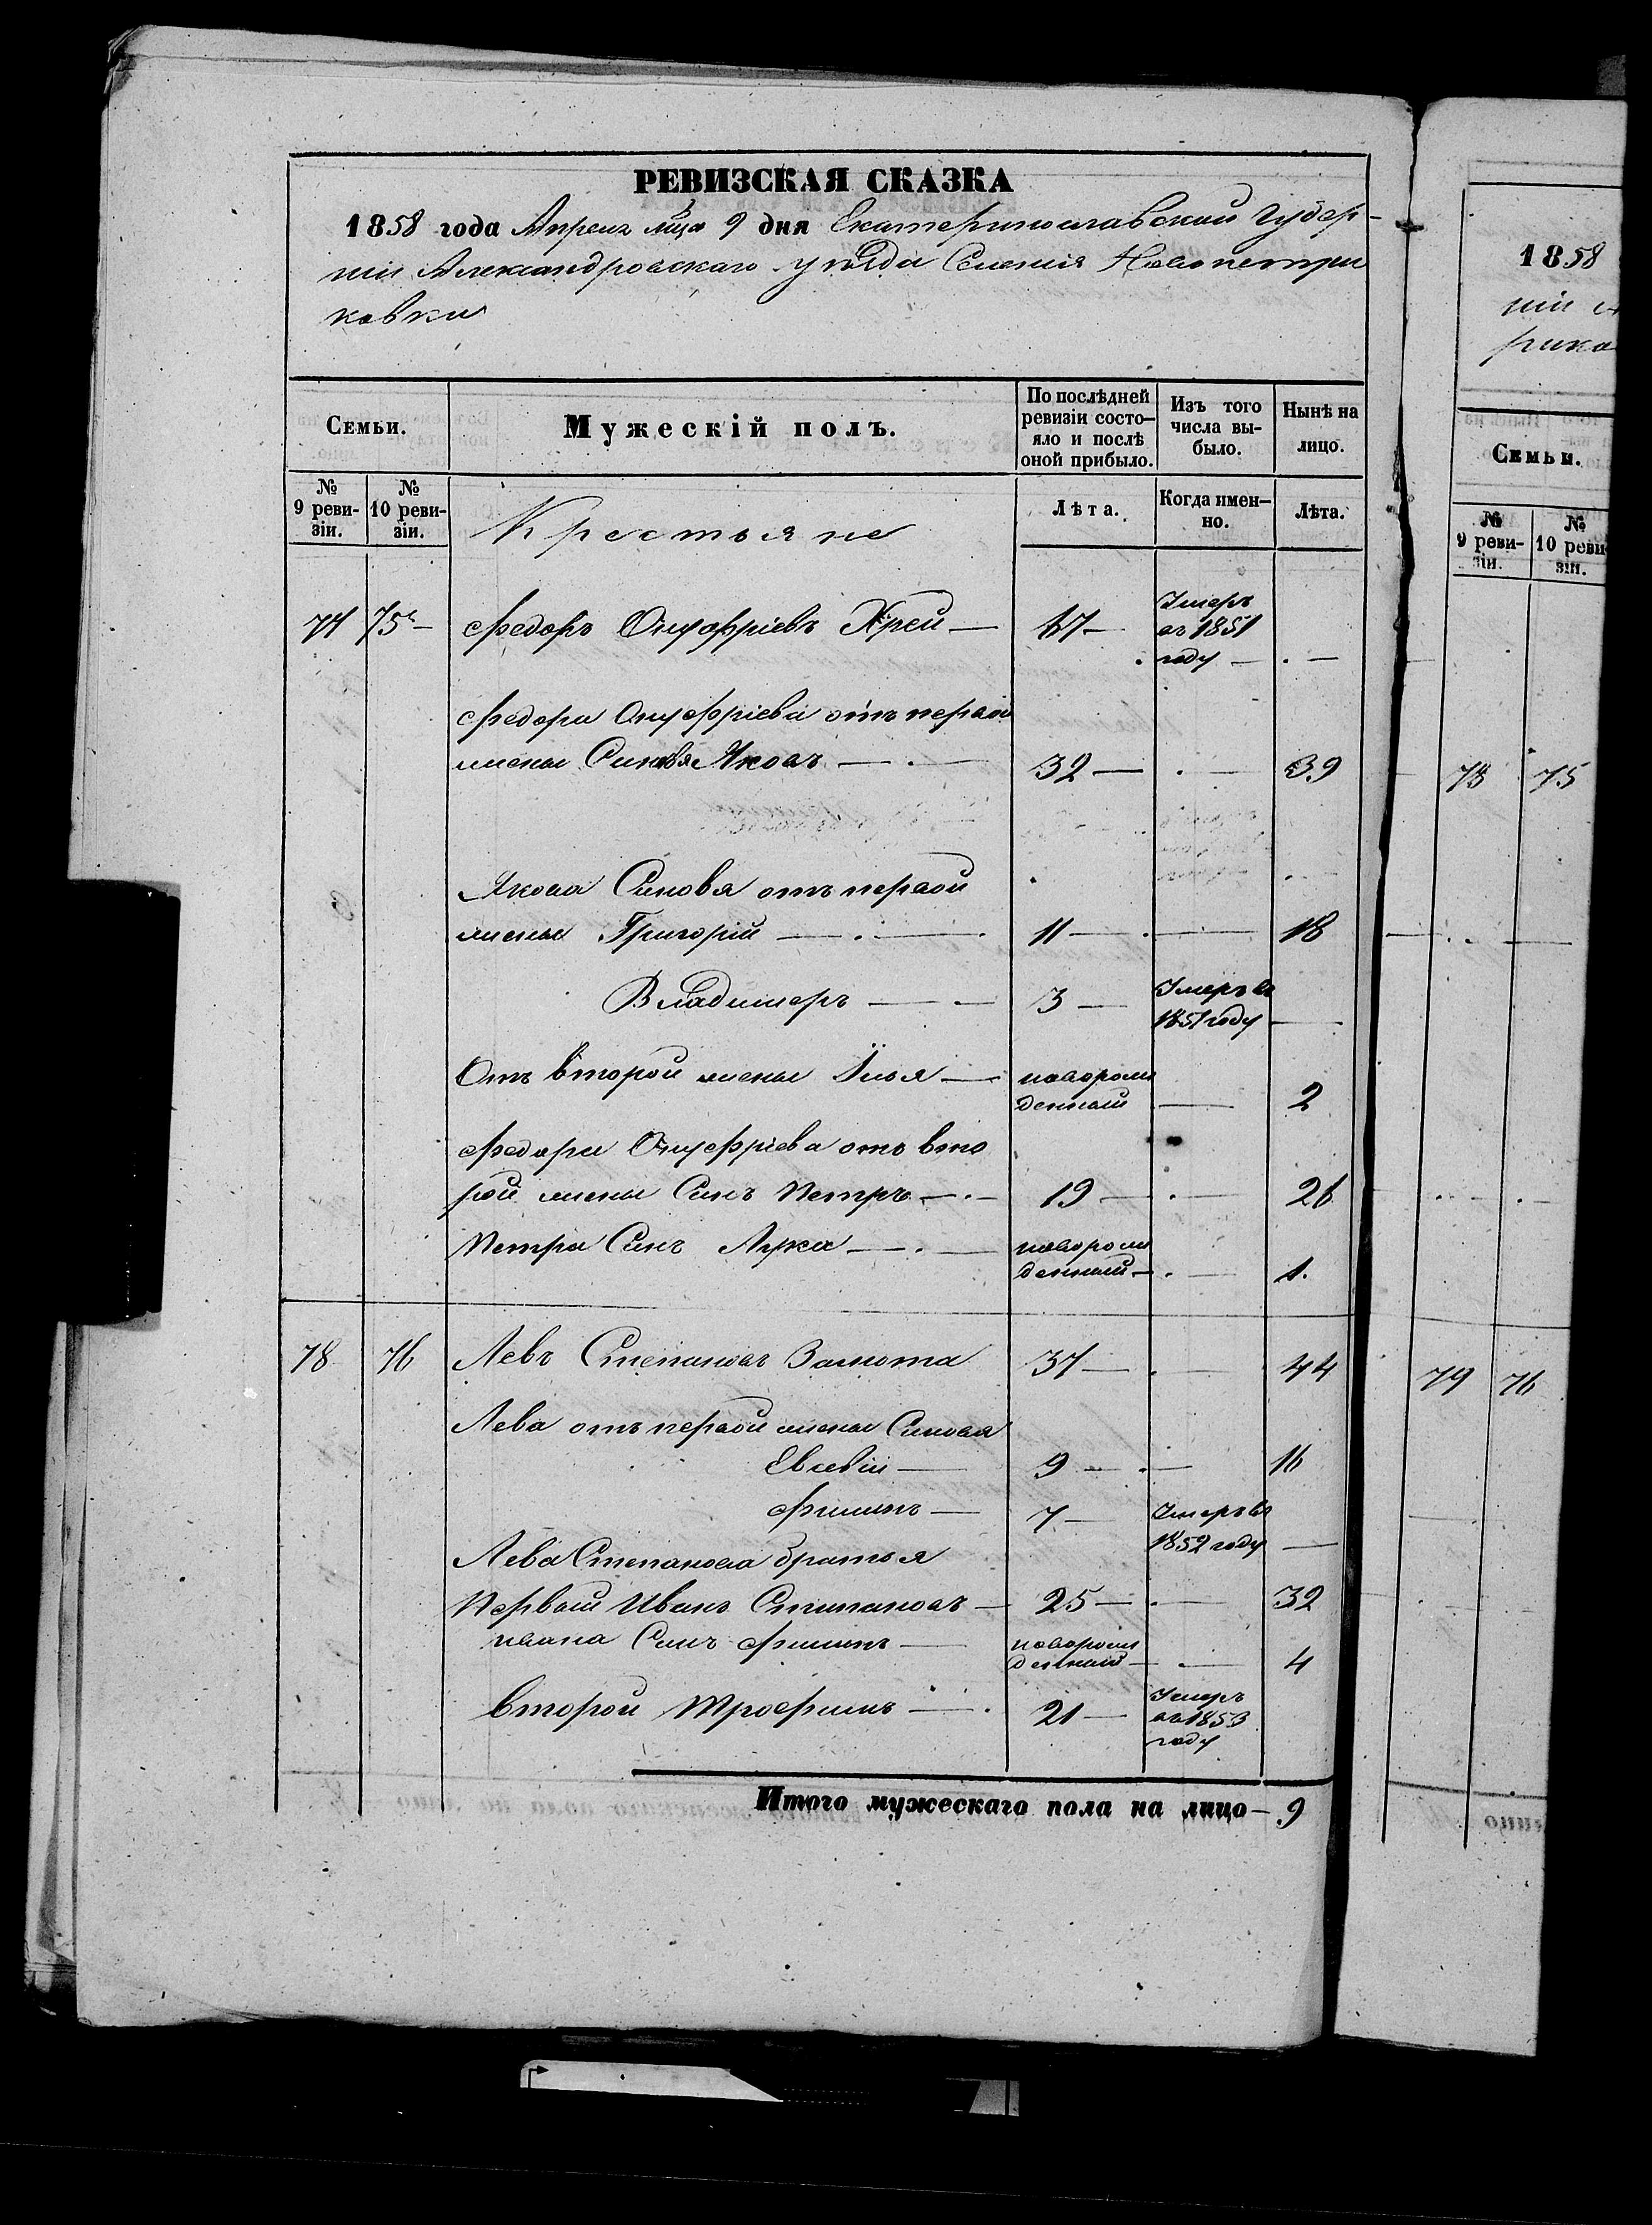 РЕВИЗСКАЯ СКАЗКА
1858 года Апреля мца 9 дня Екатеринославской Губер-
ніи Александровскаго уѣзда Селенія Новопетри
ковки
Семьи. Мужескій полъ. По послѣдней ревизіи состо-яло и послѣ оной прибыло. Изъ того числа вы-было. Нынѣ на лицо.
№ 9 реви-зіи. № 10 реви-зіи. Крестьяне Лѣта. Когда имен-но. Лѣта.
77 75 Федоръ Онуфріевъ 67 Умеръ въ 1851 году
Федора Онуфріева отъ первой
жены Синовя Яковъ 32 39
Якова Синовя отъ первой
жены Григорій 11 18
Владимеръ 3 Умеръ въ 1851 году
Отъ второй жены Ілья новорожденный 2
Федора Онуфріева отъ вто
рой жены Синъ Петръ 19 26
Петра Синъ Лука новорожденный 1.
78 76 Левъ Степановъ 37 44
Лева отъ первой жены Синовя
Евсевій 9 16
Филипъ 7 Умеръ въ 1852 году
Лева Степанова братья
Первый Иванъ Степановъ 25 32
Ивана Синъ Филипъ новорожденный 4
Второй Трофимъ 21 Умеръ въ 1853 году
Итого мужескаго пола на лицо 9
1858
ніи
рико
Семьи.
№ 9 реви-зіи. № 10 реви-зіи.
78 75
79 76